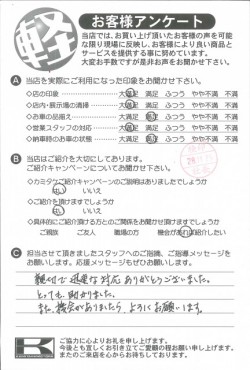 軽
お客様アンケート
当店では、お買い上げ頂いたお客様の声を可能
な限り現場に反映し、お客様により良い商品と
サービスを提供する事に努めています。
大変お手数ですが是非お声をお聞かせ下さい。
A 当店を実際にご利用になった印象をお聞かせ下さい。
◇店の印象 大満足 満足 ふつう やや不満 不満
◇店内・展示場の清掃 大満足 満足 ふつう やや不満 不満
◇お車の品揃え 大満足 満足 ふつう やや不満 不満
◇営業スタッフの対応 大満足 満足 ふつう やや不満 不満
◇納車時のお車の状態 大満足 満足 ふつう やや不満 不満
B 当店はご紹介を大切にしております。
ご紹介キャンペーンについてお聞かせ下さい。
◇カミタケご紹介キャンペーンのご説明はありましたでしょうか
はい いいえ
◇ご紹介を頂けますでしょうか
はい いいえ
◇具体的にご紹介頂ける方とのご関係をお聞かせ頂けますでしょうか
ご親族 ご友人 職場の方 機会があれば紹介したい
C 担当させて頂きましたスタッフへのご指摘、ご指導メッセージを
お願いします。応援メッセージもぜひお願いします。
親切で迅速な対応ありがとうございました。
とっても助かりました。
また機会がありましたらよろしくお願いします。
K
ご協力に心よりお礼を申し上げます。
今後とも宜しくお引き立てご愛顧の程お願い申し上げます。
またのご来店を心からお待ちしております。